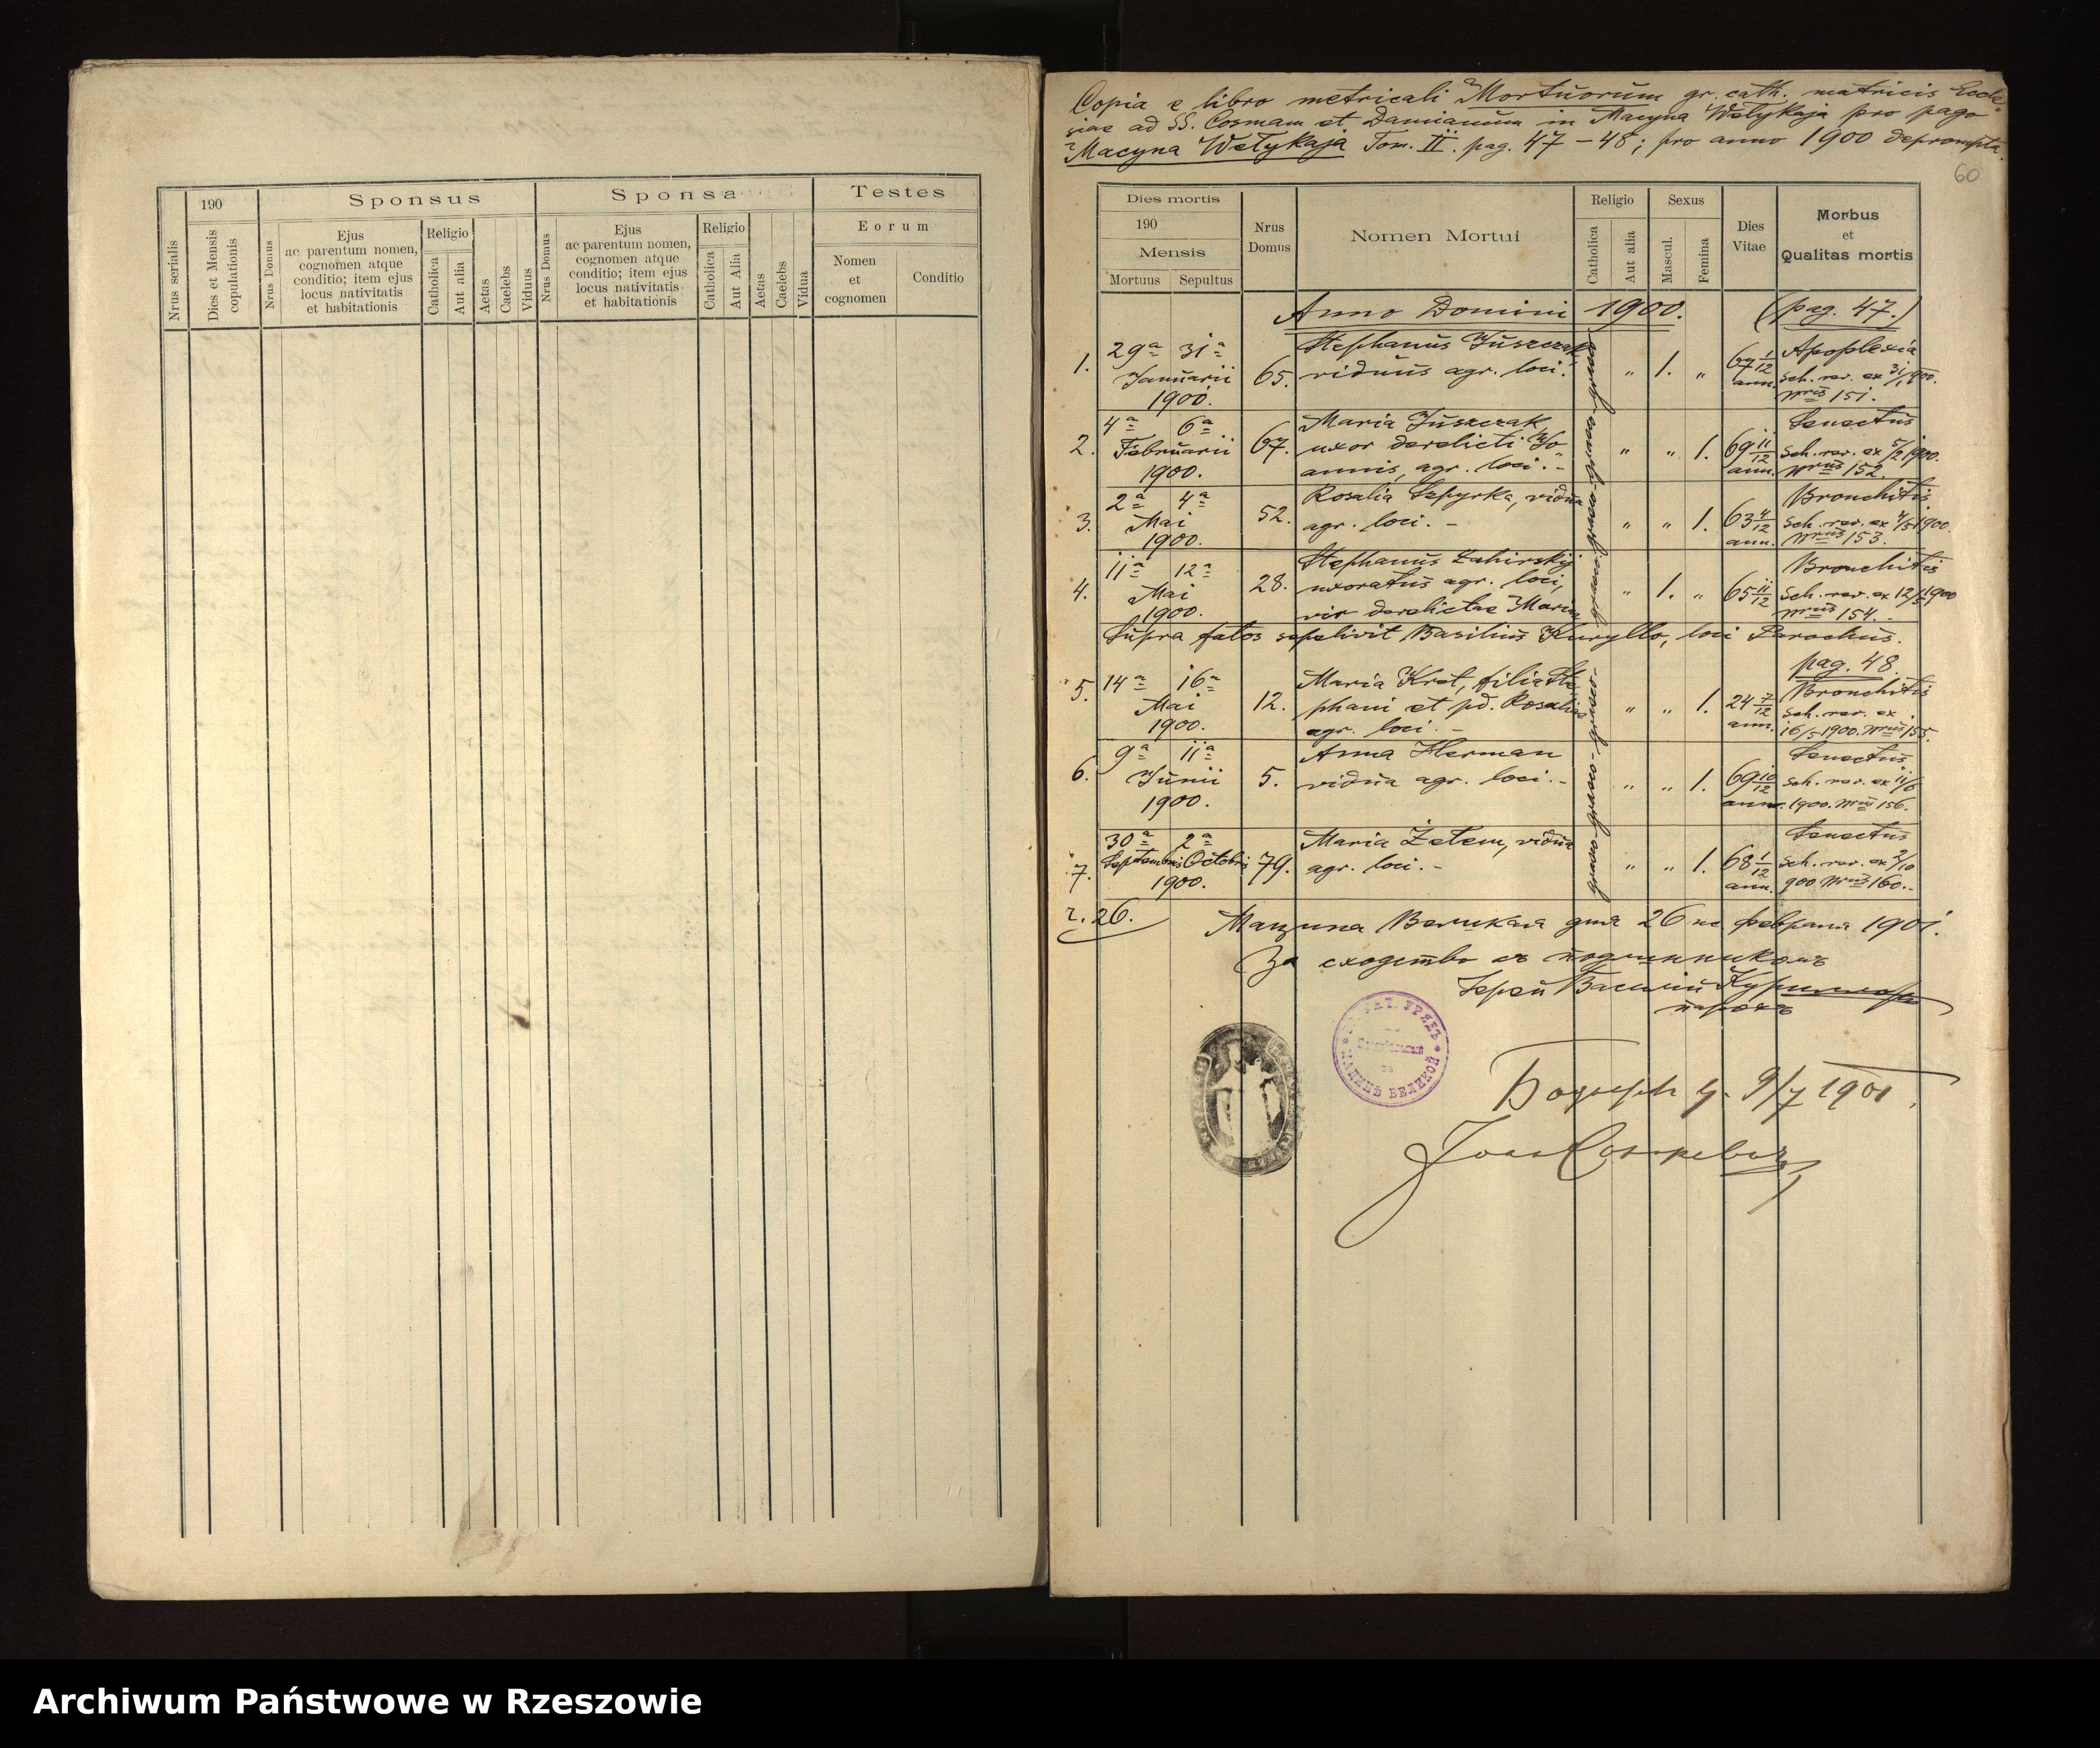 190
Sponsus
Sponsa
Testes
Nrus serialis
Dies et Mensis copulationis
Nrus Domus
Ejus
ac parentum nomen,
cognomen atque
conditio; item ejus
locus nativitatis
et habitationis
Religio
Catholica
Aut alia
Aetas
Caelebs
Viduus
Nrus Domus
Ejus
ac parentum nomen,
cognomen atque
conditio; item ejus
locus nativitatis
et habitationis
Religio
Catholica
Aut Alia
Aetas
Caelebs
Vidua
Eorum
Nomen
et
cognomen
Conditio
Copia e libro metricali Mortuorum gr. cath. matricis Eccle-
siae ad SS. Cosmam et Damianum in Macyna Wełykaja pro pago
Macyna Wełykaja Tom. II. pag. 47-48; pro anno 1900 deprompta.
60
Dies mortis
190
Mensis
Mortuus Sepultus
Nrus
Domus
Nomen Mortui
Religio
Catholica
Aut alia
Sexus
Mascul.
Femina
Dies
Vitae
Morbus
et
Qualitas mortis
Anno Domini 1900. (pag. 47.)
1. 29a 31a Januarii 1900. 65. Stephanus Juszczak, viduus agr. loci. " 1. " 67 1/12 ann. Apoplexia Sch. rev. ex 31/1 900. Nrus 151.
2. 4a 6a Februarii 1900. 67. Maria Juszczak, uxor derelicti Joannis, agr. loci.- " " 1. 69 11/12 ann. Senectus Sch. rev. ex 5/2 1900. Nrus 152.
3. 2a 4a Mai 1900. 52. Rosalia Szpyrka, vidua agr. loci.- " " 1. 63 4/12 ann. Bronchitis Sch. rev. ex 4/5 1900. Nrus 153.
4. 11a 12a Mai 1900. 28. Stephanus Zahirskij uxoratus agr. loci, vir derelictae Mariae " 1. " 65 11/12 Bronchitis Sch. rev. ex 12/5 1900 Nrus 154.-
graeco-graeco-graeco-graeco
Supra fatos sepelivit Basilius Kuryłło, loci Parochus.
pag. 48.
5. 14a 16a Mai 1900. 12. Maria Kret, filia Stephani et pd. Rosaliae agr. loci.- " " 1. 24 7/12 ann. Bronchitis Sch. rev. ex 16/5 1900. Nrus 155.
6. 9a 11a Junii 1900. 5. Anna Herman vidua agr. loci.- " " 1. 69 10/12 ann. Senectus Sch. rev. ex 11/6 1900. Nrus 156.
7. 30a Septembris 2a Octobris 1900. 79. Maria Żetem, vidua agr. loci.- " " 1. 68 1/12 ann. Senectus Sch. rev. ex 2/10 900 Nrus 160.-
graeco-graeco-graeco-
ч. 26. Мацина Великая дня 26 не февраля 1901.
За сходство съ подлинникомъ
Іерей Василій Курилло
парохъ
МАЦИНѢ ВЕЛИКОЙ
9/7 1901
Archiwum Państwowe w Rzeszowie